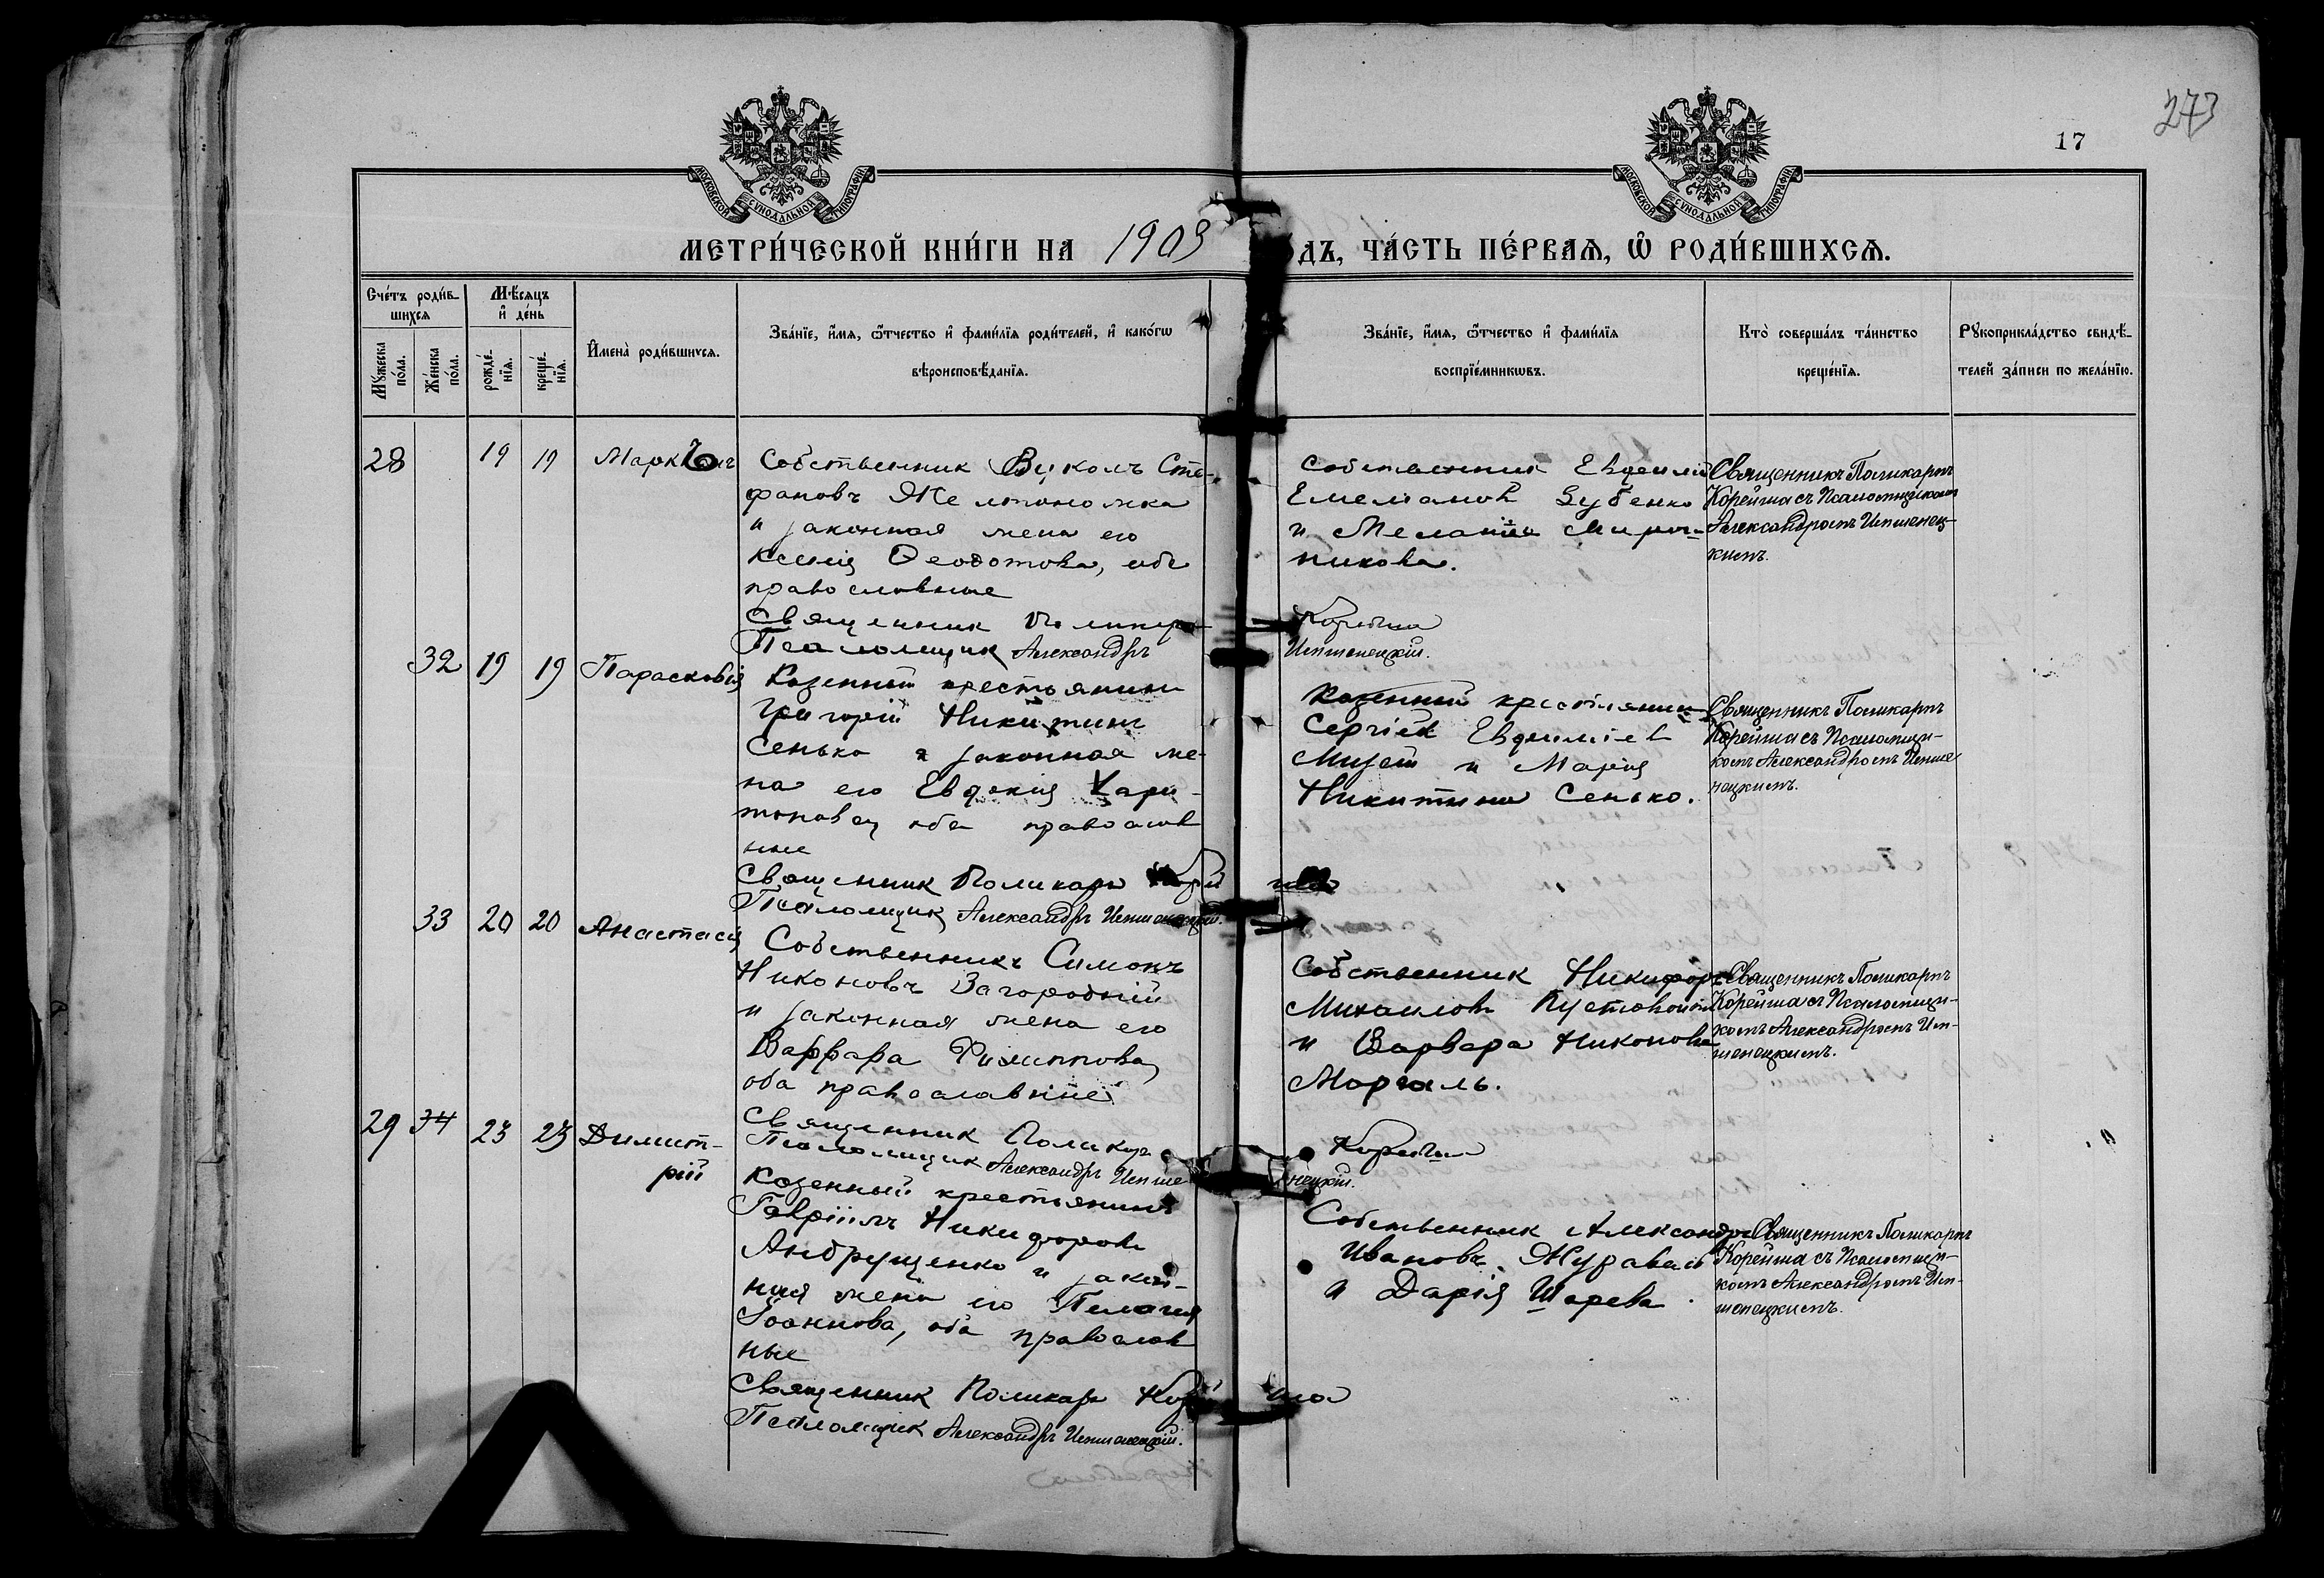 273
17
МОСКОВСКОЙ СѴНОДАЛЬНОЙ ТИПОГРАФІИ
МОСКОВСКОЙ СѴНОДАЛЬНОЙ ТИПОГРАФІИ
МЕТРИ́ЧЕСКОЙ КНИ́ГИ НА 1903
ДЪ, ЧА́СТЬ ПЕ́РВАѦ, Ѡ РОДИ́ВШИХСѦ.
Сче́тъ роди́в-
шихсѧ
Мѣ́сѧцъ
и҆ де́нь
Мꙋ́жеска
по́ла.
Же́нска
по́ла.
рожде́-
нїѧ.
креще́-
нїѧ.
И҆мена̀ роди́вшихсѧ.
Зва́нїе, и҆́мѧ, ѻ҆́тчество и҆ фами́лїѧ роди́телей, и҆ како́гѡ
вѣроисповѣ́данїѧ.
Зва́нїе, и҆́мѧ, ѻ҆́тчество и҆ фами́лїѧ
воспрїе́мникѡвъ.
Кто̀ соверша́лъ та́инство
креще́нїѧ.
Рꙋкоприкла́дство свидѣ́-
телей за́писи по жела́нїю.
28 19 19 Маркъ
Собственник Вуколъ Сте-
фановъ Желтоножка
и законная жена его
Ксенія Ѳеодотова, оба
православные
Священник Поликарп Корейша
Псаломщик Александръ Ипшенецкій.
Собственник Евѳимій
Емеліанов Зубенко
и Меланія Мирош-
никова.
Священникъ Поликарпъ
Корейша съ Псаломщикомъ
Александромъ Ипшенец-
кимъ.
32 19 19 Парасковія
Казенный крестьянин
Григорій Никитинъ
Сенько и законная же-
на его Евдокія Хари-
тонова, оба православ
ные
Священник Поликарп Корейша
Псаломщик Александръ Ипшенецкій.
Казенный крестьянин
Сергій Евѳиміев
Мизей и Марія
Никитина Сенько.
Священникъ Поликарпъ
Корейша съ Псаломщи-
комъ Александромъ Ипше
нецкимъ.
33 20 20 Анастасія
Собственникъ Симонъ
Никоновъ Загородній
и законная жена его
Варвара Филиппова,
оба православные
Священник Поликарп Корейша
Псаломщик Александръ Ипшенецкій.
Собственник Никифоръ
Михаилов Пустовойтъ
и Варвара Никонова
Моргаль.
Священникъ Поликарпъ
Корейша съ Псаломщи-
комъ Александромъ Ип-
шенецкимъ.
29 34 23 23 Димит-
рій
Казенный крестьянинъ
Гавріилъ Никифоров
Андрущенко и закон-
ная жена его Пелагія
Іоаннова, оба православ
ные
Священник Поликарп Корейша
Псаломщик Александръ Ипшенецкій.
Собственник Александръ
Ивановъ Журавель
и Дарія Шарева.
Священникъ Поликарпъ
Корейша съ Псаломщи-
комъ Александромъ Ип-
шенецкимъ.